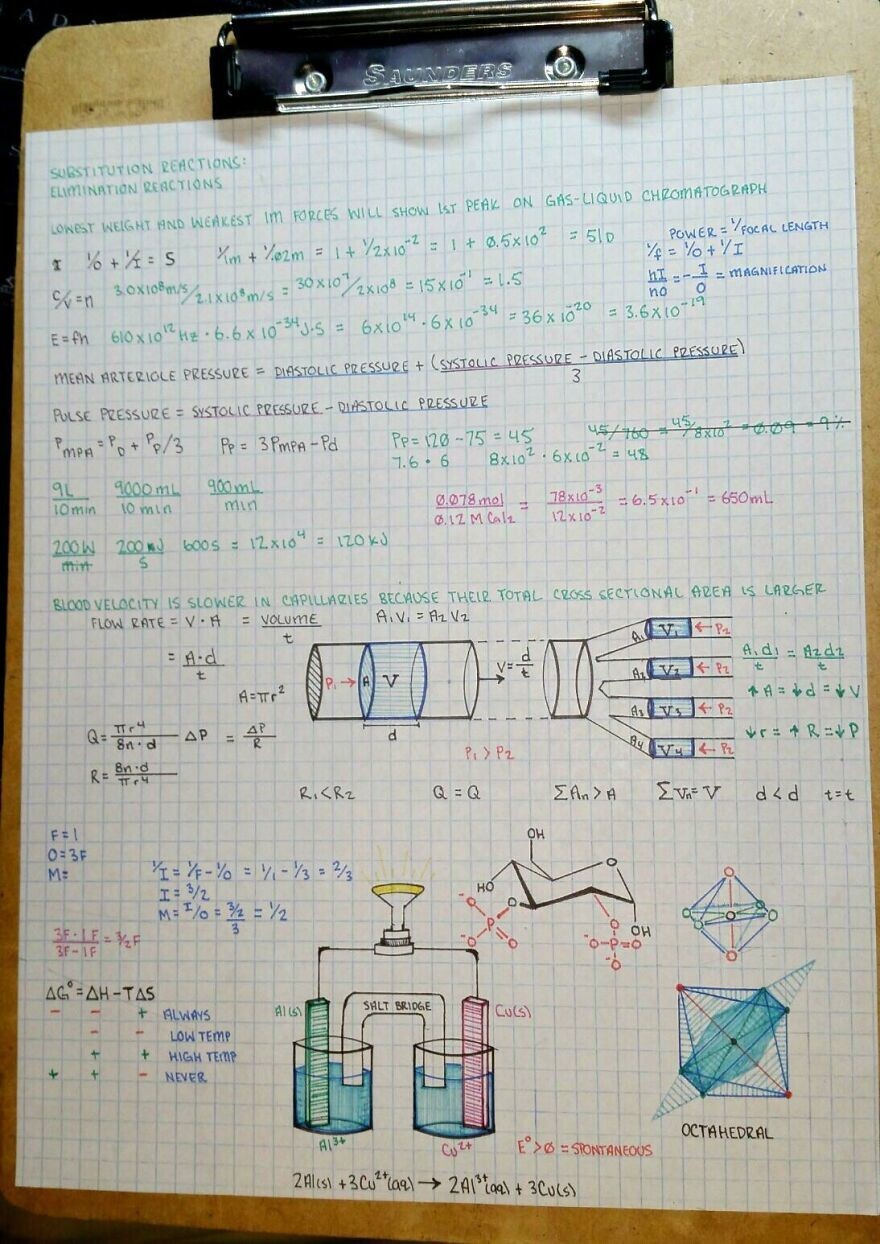 SAUNDERS
SUBSTITUTION REACTIONS:
ELIMINATION REACTIONS
LOWEST WEIGHT AND WEAKEST IM FORCES WILL SHOW 1ST PEAK ON GAS-LIQUID CHROMATOGRAPH
I 1/O + 1/I = S 1/1m + 1/.02m = 1 + 1/2x10⁻² = 1 + 0.5x10² = 51D
POWER = 1/FOCAL LENGTH
1/f = 1/O + 1/I
hI/hO = -I/O = MAGNIFICATION
C/V = n 3.0x10⁸m/s/2.1x10⁸m/s = 30x10⁷/2x10⁸ = 15x10⁻¹ = 1.5
E = fh 610x10¹²Hz · 6.6x10⁻³⁴J·S = 6x10¹⁴ · 6x10⁻³⁴ = 36x10⁻²⁰ = 3.6x10⁻¹⁹
MEAN ARTERIOLE PRESSURE = DIASTOLIC PRESSURE + (SYSTOLIC PRESSURE - DIASTOLIC PRESSURE)/3
PULSE PRESSURE = SYSTOLIC PRESSURE - DIASTOLIC PRESSURE
PMPA = PD + PP/3 PP = 3PMPA - Pd PP = 120 - 75 = 45 45/760 = 45/8x10² = 0.09 = 9%
7.6 · 6 8x10² · 6x10⁻² = 48
9L/10min 9000mL/10min 900mL/min
0.078mol/0.12 M CaI₂ = 78x10⁻³/12x10⁻² = 6.5x10⁻¹ = 650mL
200W/min 200J/S 600S = 12x10⁴ = 120kJ
BLOOD VELOCITY IS SLOWER IN CAPILLARIES BECAUSE THEIR TOTAL CROSS SECTIONAL AREA IS LARGER
FLOW RATE = V · A = VOLUME/t A₁V₁ = A₂V₂
= A·d/t
A = πr²
P₁ → A V
d
V = d/t
A₁ V₁ ← P₂
A₂ V₂ ← P₂
A₃ V₃ ← P₂
A₄ V₄ ← P₂
A₁d₁/t = A₂d₂/t
↑A = ↓d = ↓V
↓r = ↑R = ↓P
Q = πr⁴/8n·d ΔP = ΔP/R
P₁ > P₂
R = 8n·d/πr⁴
R₁ < R₂ Q = Q ΣAn > A ΣVn = V d < d t = t
F = 1
O = 3F
M =
1/I = 1/F - 1/O = 1/1 - 1/3 = 2/3
I = 3/2
M = I/O = 3/2/3 = 1/2
3F·1F/3F-1F = 3/2F
OH
O
HO
O
OH
O⁻
⁻O
P
O
O
⁻O-P=O
O⁻
ΔG° = ΔH - TΔS
- - + ALWAYS
- - LOW TEMP
+ + HIGH TEMP
+ + - NEVER
Al(s) SALT BRIDGE Cu(s)
Al³⁺ Cu²⁺
E° > Ø = SPONTANEOUS
OCTAHEDRAL
2Al(s) + 3Cu²⁺(aq) → 2Al³⁺(aq) + 3Cu(s)